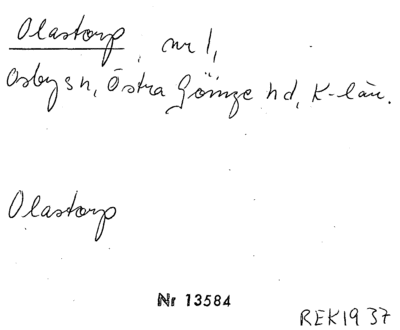 Olastorp, nr 1,
Osby sn, Östra Göinge hd, K-län.
Olastorp
Nr 13584
REK1937